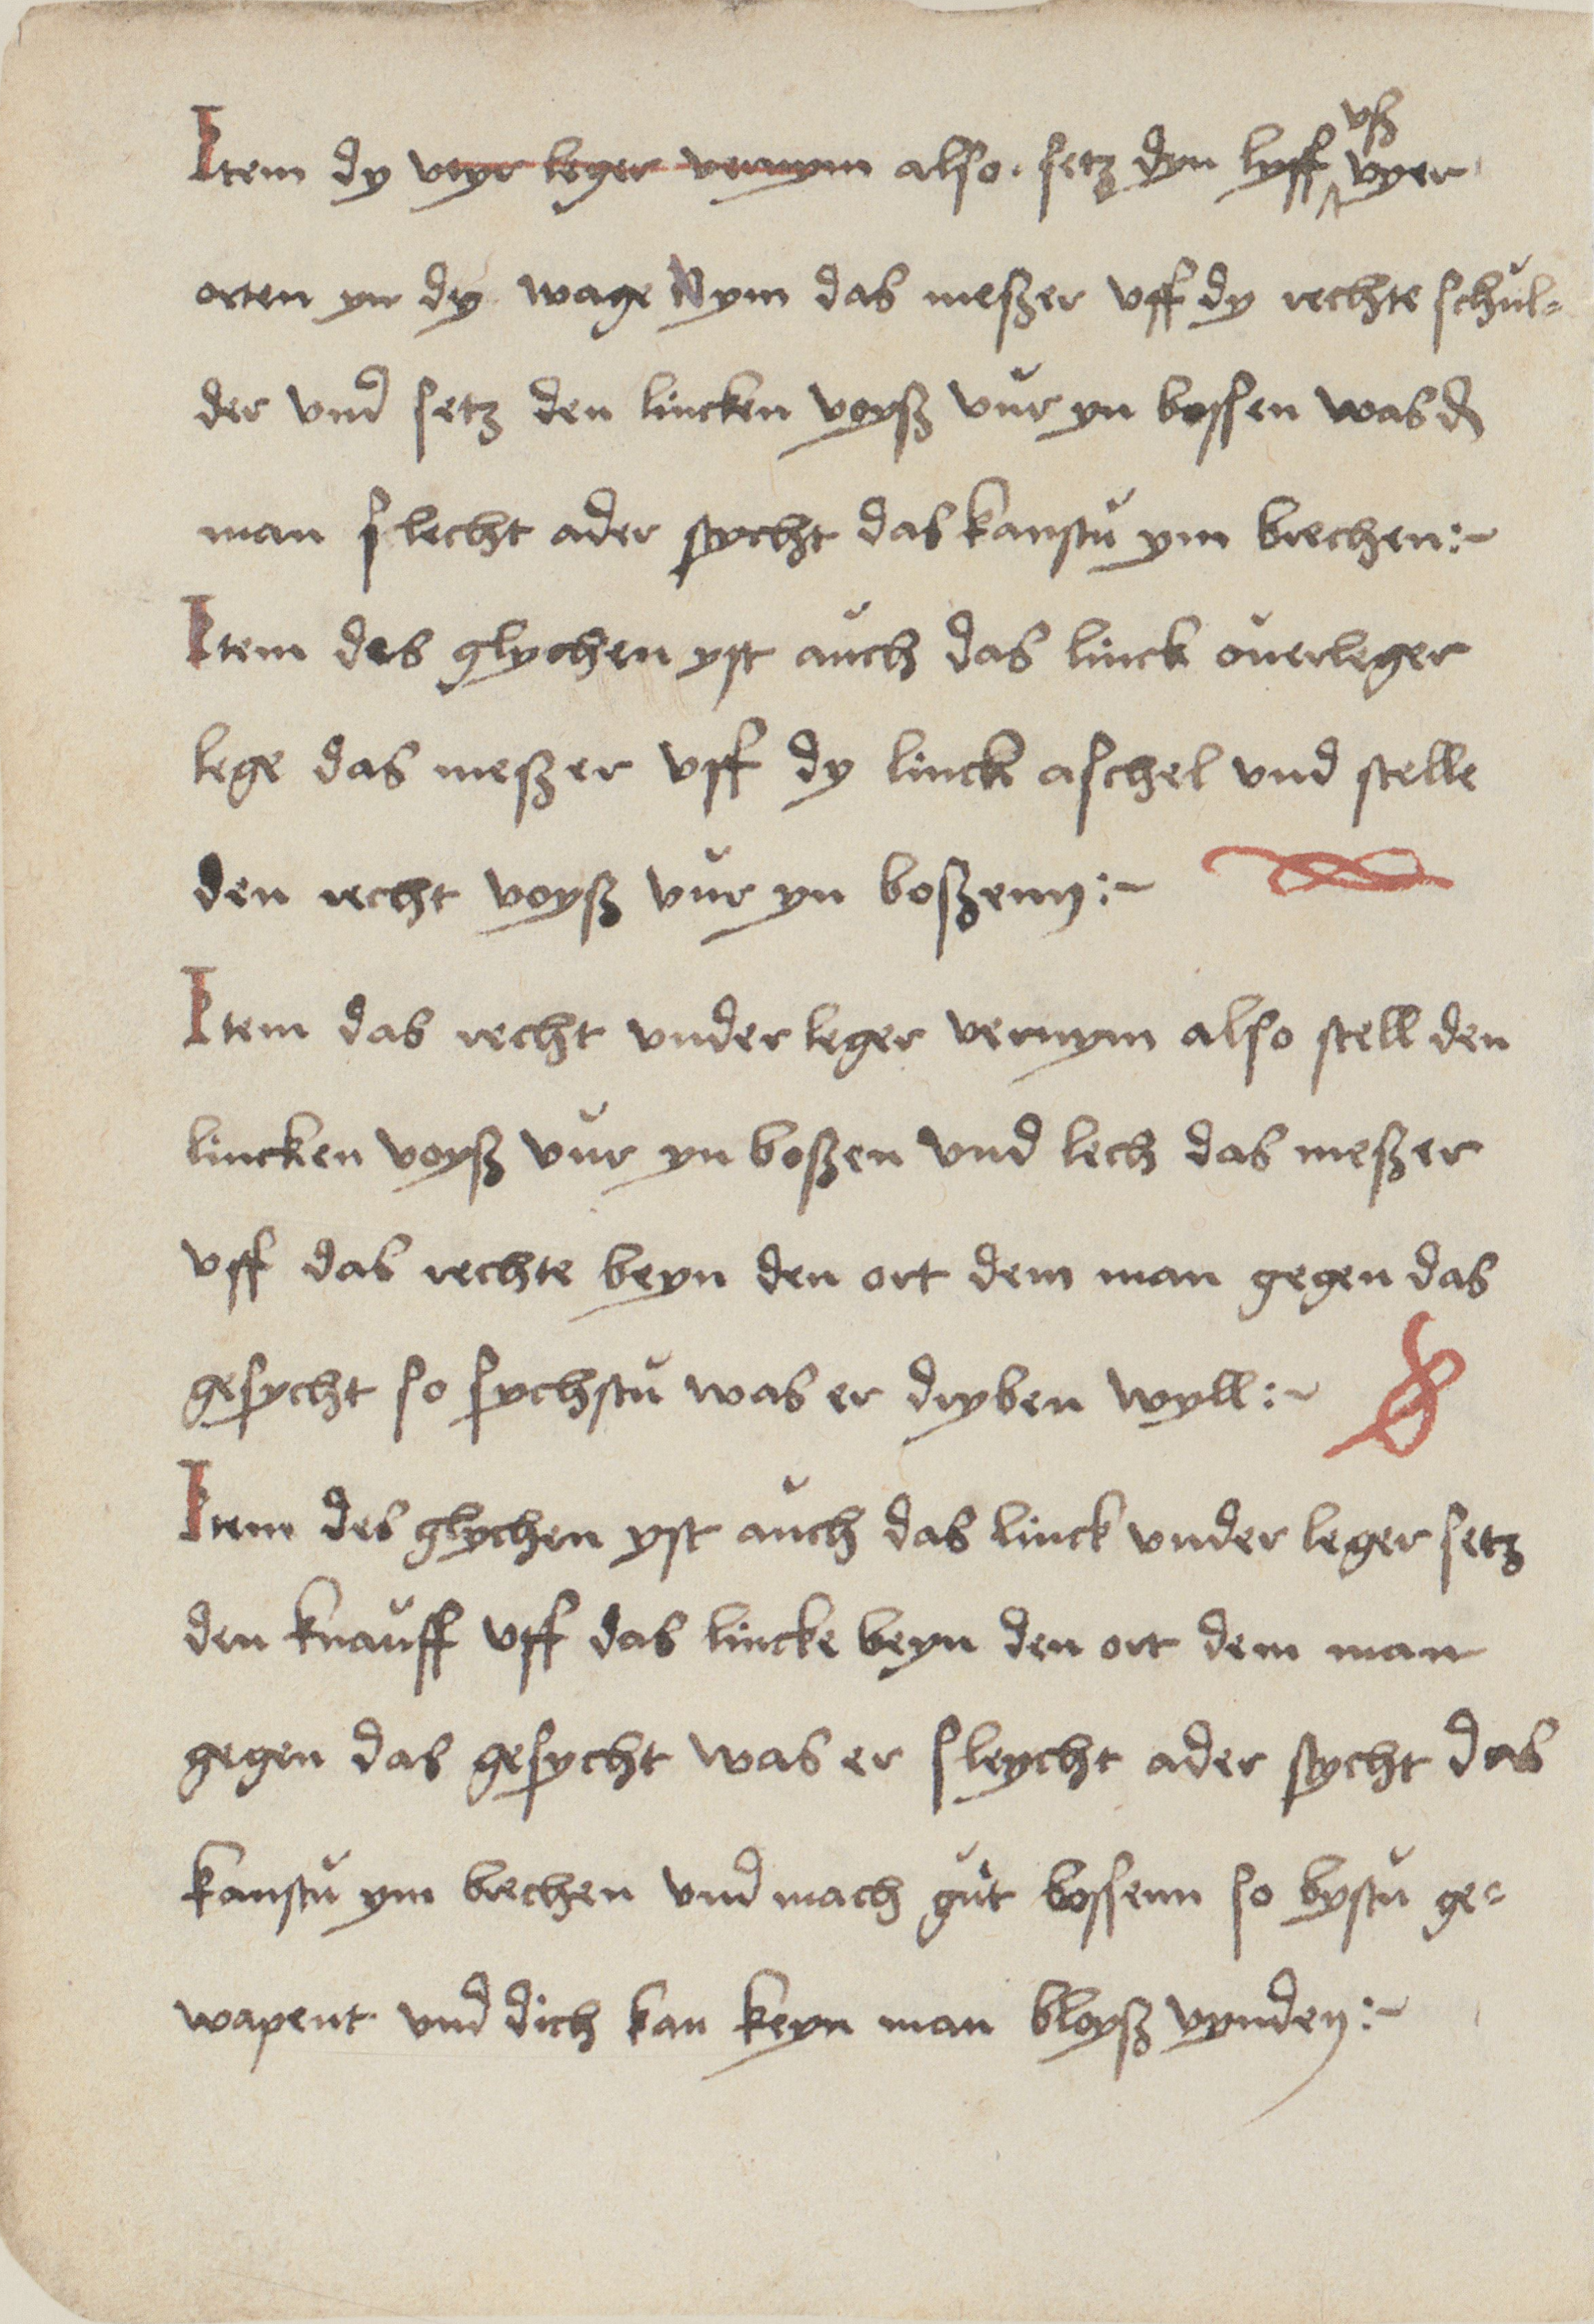 Item dy vyr leger vernym also. setz dyn lyff vß vyer
orten yn dy wage Nym das meßer vff dy rechte schŭl-
der vnd setz den lincken voyß vŭr yn bossen was d
man slecht ader stycht das kanstŭ ym brechen :~
Item des glychen yst aŭch das linck ouerleger
lege das meßer vff dy linck aschel vnd stelle
den recht voyß vŭr yn boßenn :~
Item das recht vnder leger vernym also stell den
lincken voyß vŭr yn boßen vnd lech das meßer
vff das rechte beyn den ort dem man gegen das
gesycht so sychstŭ was er dryben wyll :~
Item des glychen yst aŭch das linck vnder leger setz
den knaŭff vff das lincke beyn den ort dem man
gegen das gesycht was er sleycht ader stycht das
kanstŭ ym brechen vnd mach gŭt bossenn so bystŭ ge-
wapent vnd dich kan keyn man bloyß vynden :~